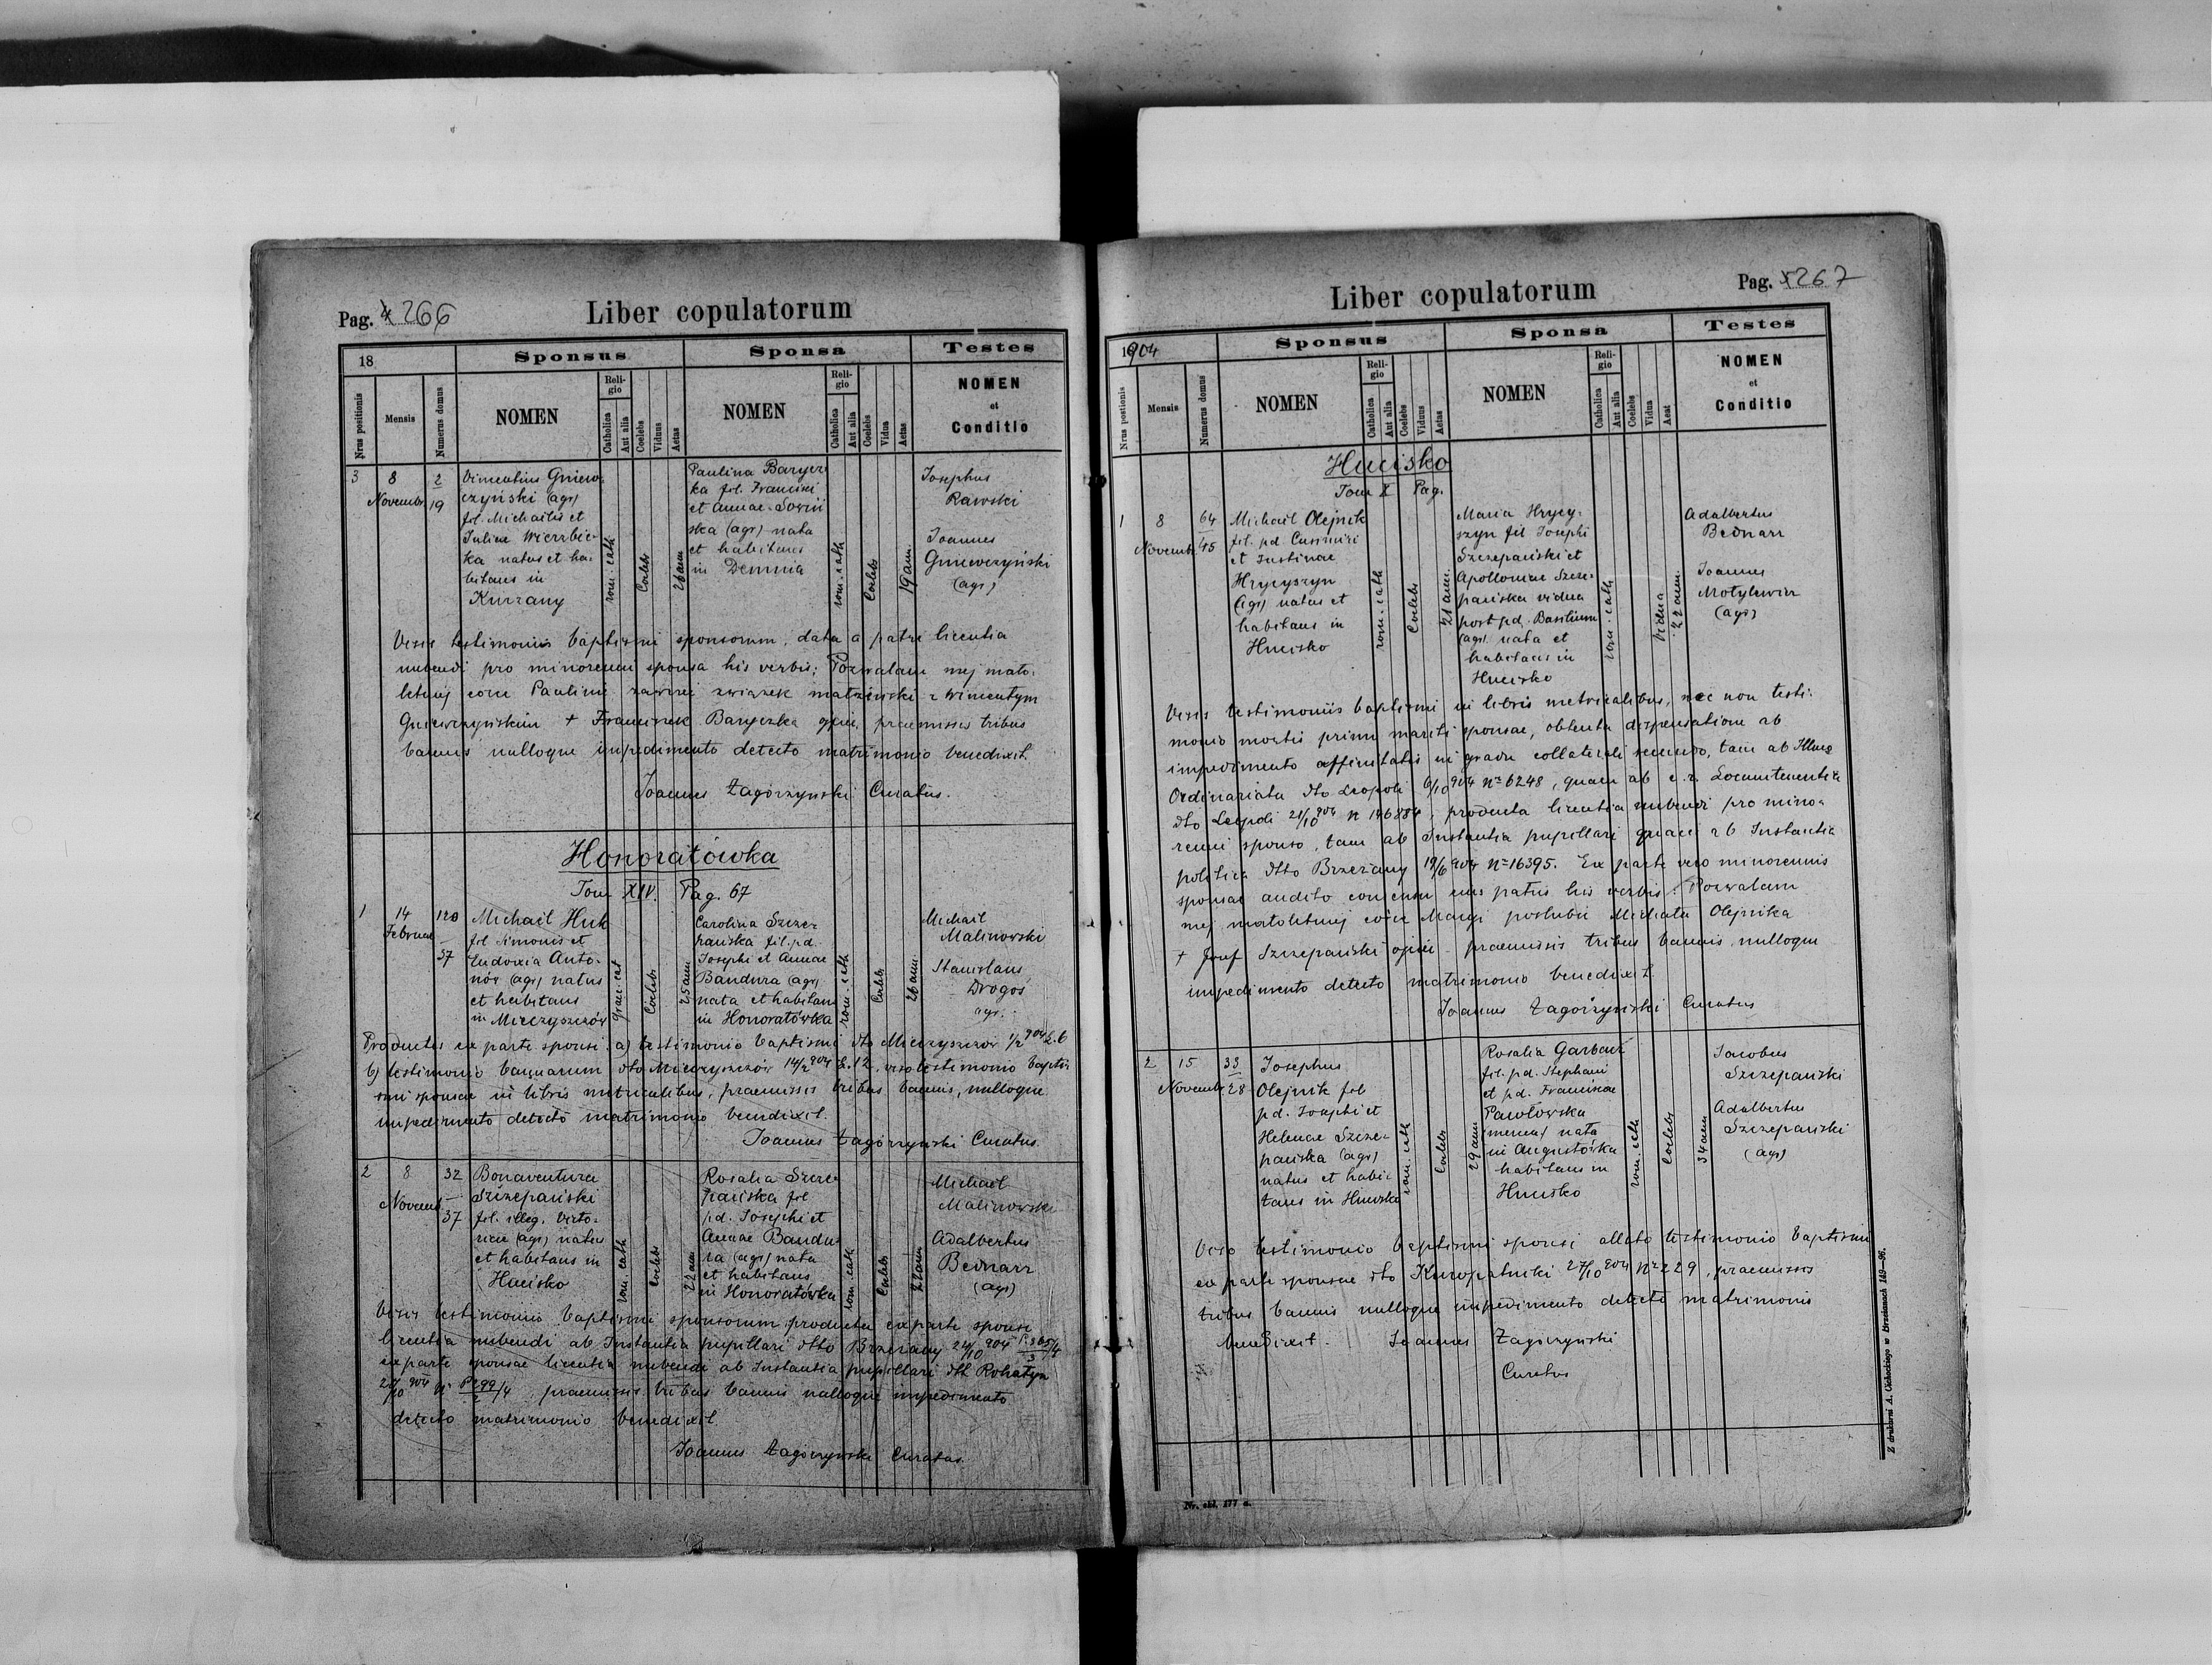 Pag. 266
Liber copulatorum
18
Sponsus
Sponsa
Testes
Nrus positionis
Mensis
Numerus domus
NOMEN
Religio
Catholica
Aut alia
Coelebs
Viduus
Aetas
NOMEN
Religio
Catholica
Aut alia
Coelebs
Vidua
Aetas
NOMEN
et
Conditio
3
8
Novembr
2
19
Vincentius Gniew-
czyński (agr)
fil. Michaelis et
Juliae Wierzbic-
ka natus et ha-
bitans in
Kurzany
rom. cath
Coelebs
26 ann
Paulina Barycz-
ka fil. Francisci
et Annae
ska (agr) nata
et habitans
in Demnia
rom. cath
Coelebs
19 ann.
Josephus
Rawski
Joannes
Gniewczyński
(agr)
Visis testimoniis baptismi sponsorum, data a patre licentia
nubendi pro minorenni sponsa his verbis: Pozwalam mej mało-
letniej córce Paulinie zawrzeć związek małżeński z Wincentym
Gniewczyńskim + Franciszek Baryczka ojciec, praemissis tribus
bannis nulloque impedimento detecto matrimonio benedixit.
Joannes Zagórzyński Curatus.
Honoratówka
Tom XIV. Pag. 67
1
14
Februar
120
37
Michael Huk
fil Simonis et
Eudoxia Anto-
nów (agr) natus
et habitans
in Mieczyszczów
graec. cat
Coelebs
25 ann
Carolina Szcze-
pańska fil. pd.
Josephi et Annae
Bandura (agr)
nata et habitans
in Honoratówka
rom. cath
Coelebs
26 ann.
Michael
Malinowski
Stanislaus
Drogoś
agr.
Productis ex parte sponsi: a) testimonio baptismi dto Mieczyszczów 1/2 904 L. 6
b) testimonio bannorum dto Mieczyszczów 14/2 904 L. 12, viso testimonio bapti-
smi sponsae in libris metricalibus, praemissis tribus bannis, nulloque
impedimento detecto matrimonio benedixit.
Joannes Zagórzyński Curatus.
2
8
Novemb
32
37
Bonaventura
Szczepański
fil. illeg. Victo-
riae (agr) natus
et habitans in
Hucisko
rom. cath
Coelebs
22 ann
Rosalia Szcze-
pańska fil
pd. Josephi et
Annae Bandu-
ra (agr) nata
et habitans
in Honoratówka
rom. cath
Coelebs
22 ann
Michael
Malinowski
Adalbertus
Bednarz
(agr)
Visis testimoniis baptismi sponsorum, producta ex parte sponsi
licentia nubendi ab Instantia pupillari dtto Brzeżany 24/10 904 P. 365/4 3
ex parte sponsae licentia nubendi ab Instantia pupillari dtt Rohatyn
27/10 904 N P 299/4 2, praemissis tribus bannis nulloque impedimento
detecto matrimonio benedixit.
Joannes Zagórzyński Curatus.
Pag. 267
Liber copulatorum
1904
Sponsus
Sponsa
Testes
Nrus postionis
Mensis
Numerus domus
NOMEN
Religio
Catholica
Aut alia
Coelebs
Viduus
Aetas
NOMEN
Religio
Catholica
Aut alia
Coelebs
Vidua
Aeat
NOMEN
et
Conditio
Hucisko
Tom X Pag.
1
8
Novemb
64
45
Michael Olejnik
fil. pd Casimiri
et Justinae
Hrycyszyn
(agr) natus et
habitans in
Hucisko
rom. cath
Coelebs
21 ann.
Maria Hrycy-
szyn fil Josephi
Szczepański et
Apolloniae Szcze-
pańska vidua
post pd. Basilium
(agr). nata et
habitans in
Hucisko
rom. cath
Vidua
22 ann.
Adalbertus
Bednarz
Joannes
Motylewicz
(agr)
Visis testimoniis baptismi in libris metricalibus, nec non testi-
monio mortis primi mariti sponsae, obtenta dispensatione ab
impedimento affinitatis in gradu collaterali secundo, tam ab Illmo
Ordinariatu dto Leopoli 6/10 904 No 6248, quam ab c. r. Locumtenentia
dto Leopoli 21/10 904 N 146884, producta licentia nubendi pro mino-
renni sponso, tam ab Instantia pupillari quam ab Instantia
politica dtto Brzeżany 19/6 904 No 16395. Ex parte vero minorennis
sponsae audito consensu eius patris his verbis: Pozwalam
mej małoletniej córce Maryi poślubić Michała Olejnika
+ Józef Szczepański ojciec praemissis tribus bannis nulloque
impedimento detecto matrimonio benedixit.
Joannes Zagórzyński Curatus
2
15
Novembr
33
28
Josephus
Olejnik fil
pd. Josephi et
Helenae Szcze-
pańska (agr)
natus et habi-
tans in Hucisko
rom. cath
Coelebs
29 ann
Rosalia Garbacz
fil. pd. Stephani
et pd. Franciscae
Pawłowska
nata
in Augustówka
habitans in
Hucisko
rom. cath
Coelebs
34 ann
Jacobus
Szczepański
Adalbertus
Szczepański
(agr)
Viso testimonio baptismi sponsi allato testimonio baptismi
ex parte sponsae dto Kuropatniki 27/10 904 No 229, praemissis
tribus bannis nulloque impedimento detecto matrimonio
benedixit. Joannes Zagórzyński
Curatus
Nr. obl. 177 a.
Z drukarni A. Cichockiego w Brzeżanach 149—96.